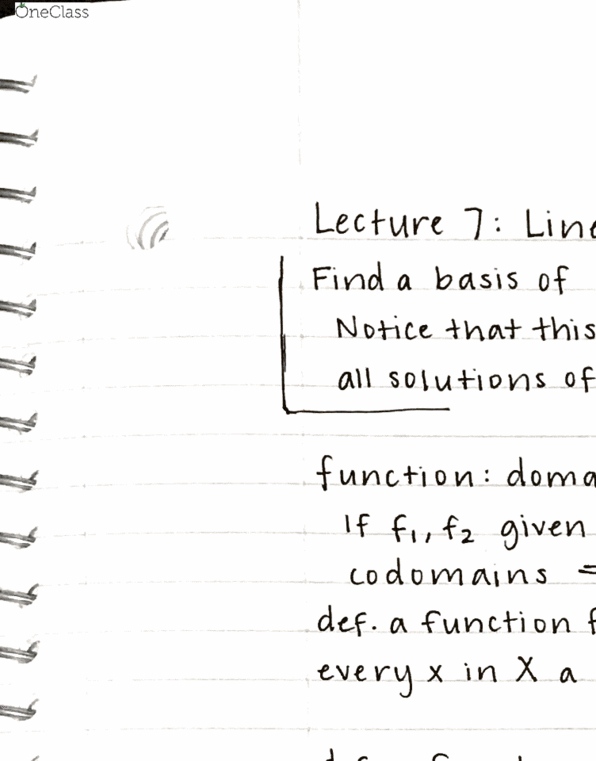 OneClass
Lecture 7: Line
Find a basis of
Notice that this
all solutions of
function: doma
If f₁, f₂ given
codomains =
def. a function f
every x in X a